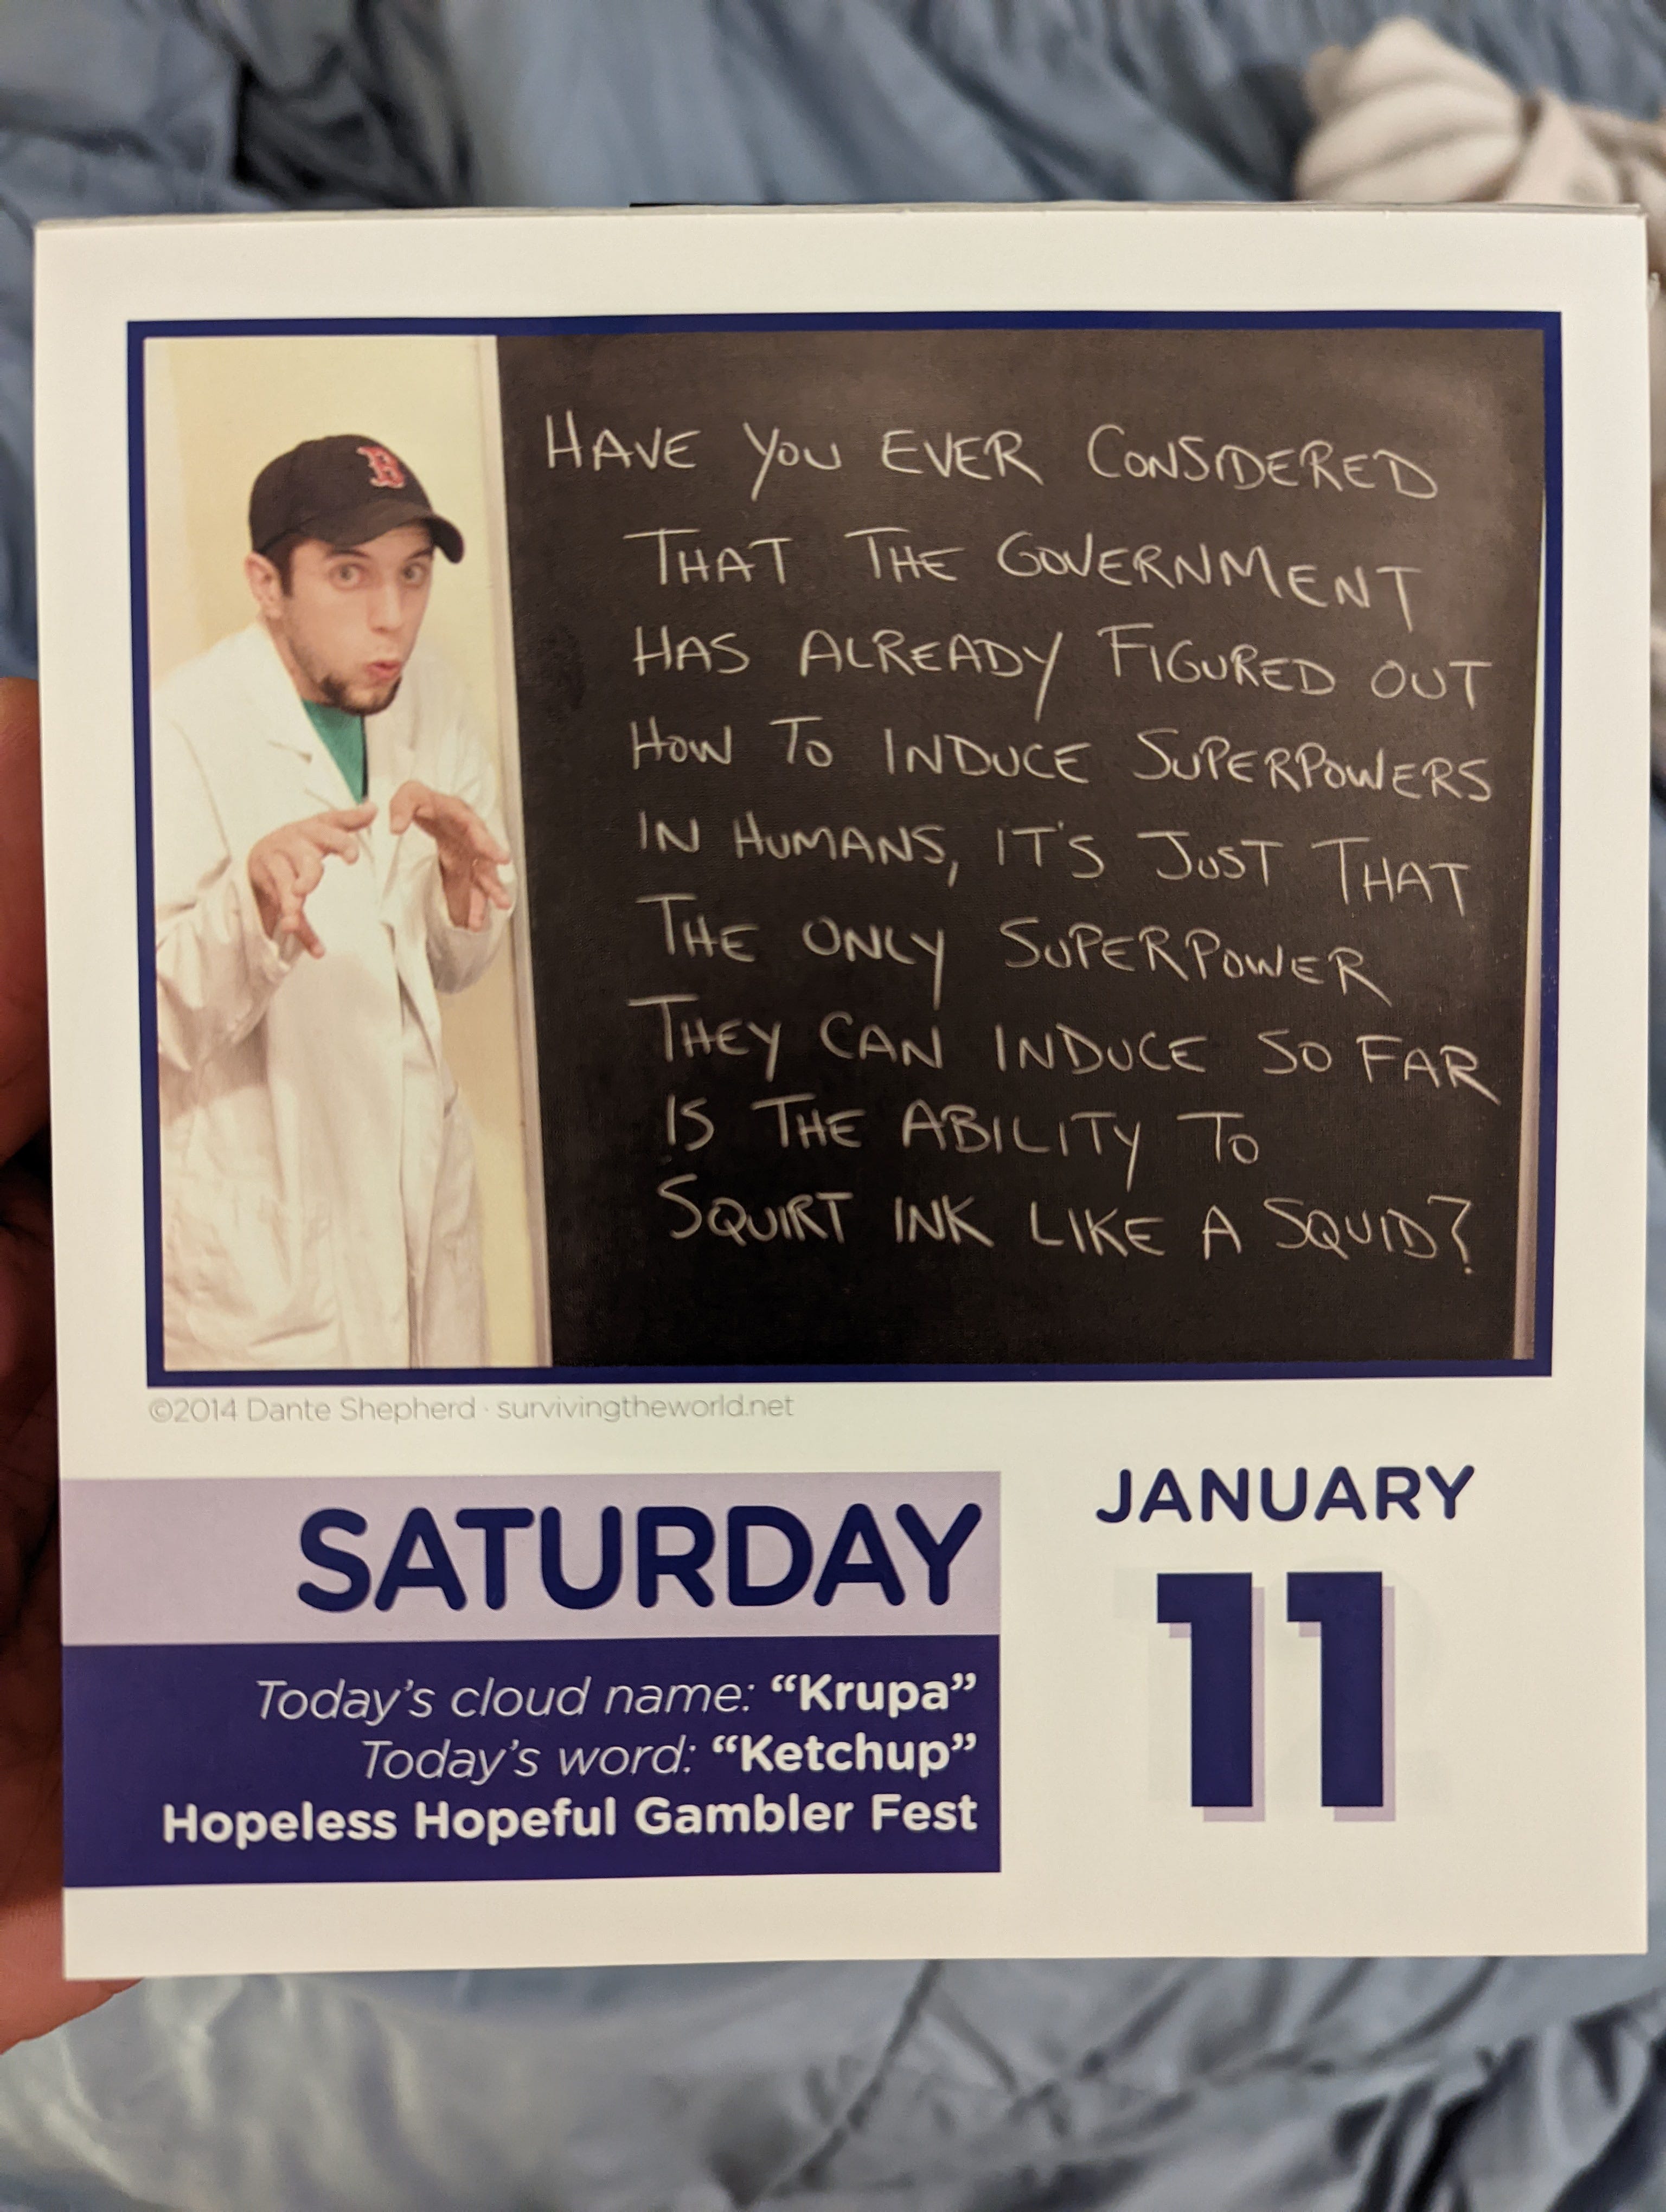 B
HAVE YOU EVER CONSIDERED
THAT THE GOVERNMENT
HAS ALREADY FIGURED OUT
HOW TO INDUCE SUPERPOWERS
IN HUMANS, IT'S JUST THAT
THE ONLY SUPERPOWER
THEY CAN INDUCE SO FAR
IS THE ABILITY TO
SQUIRT INK LIKE A SQUID?
©2014 Dante Shepherd · survivingtheworld.net
SATURDAY
Today's cloud name: “Krupa”
Today's word: “Ketchup”
Hopeless Hopeful Gambler Fest
JANUARY
11